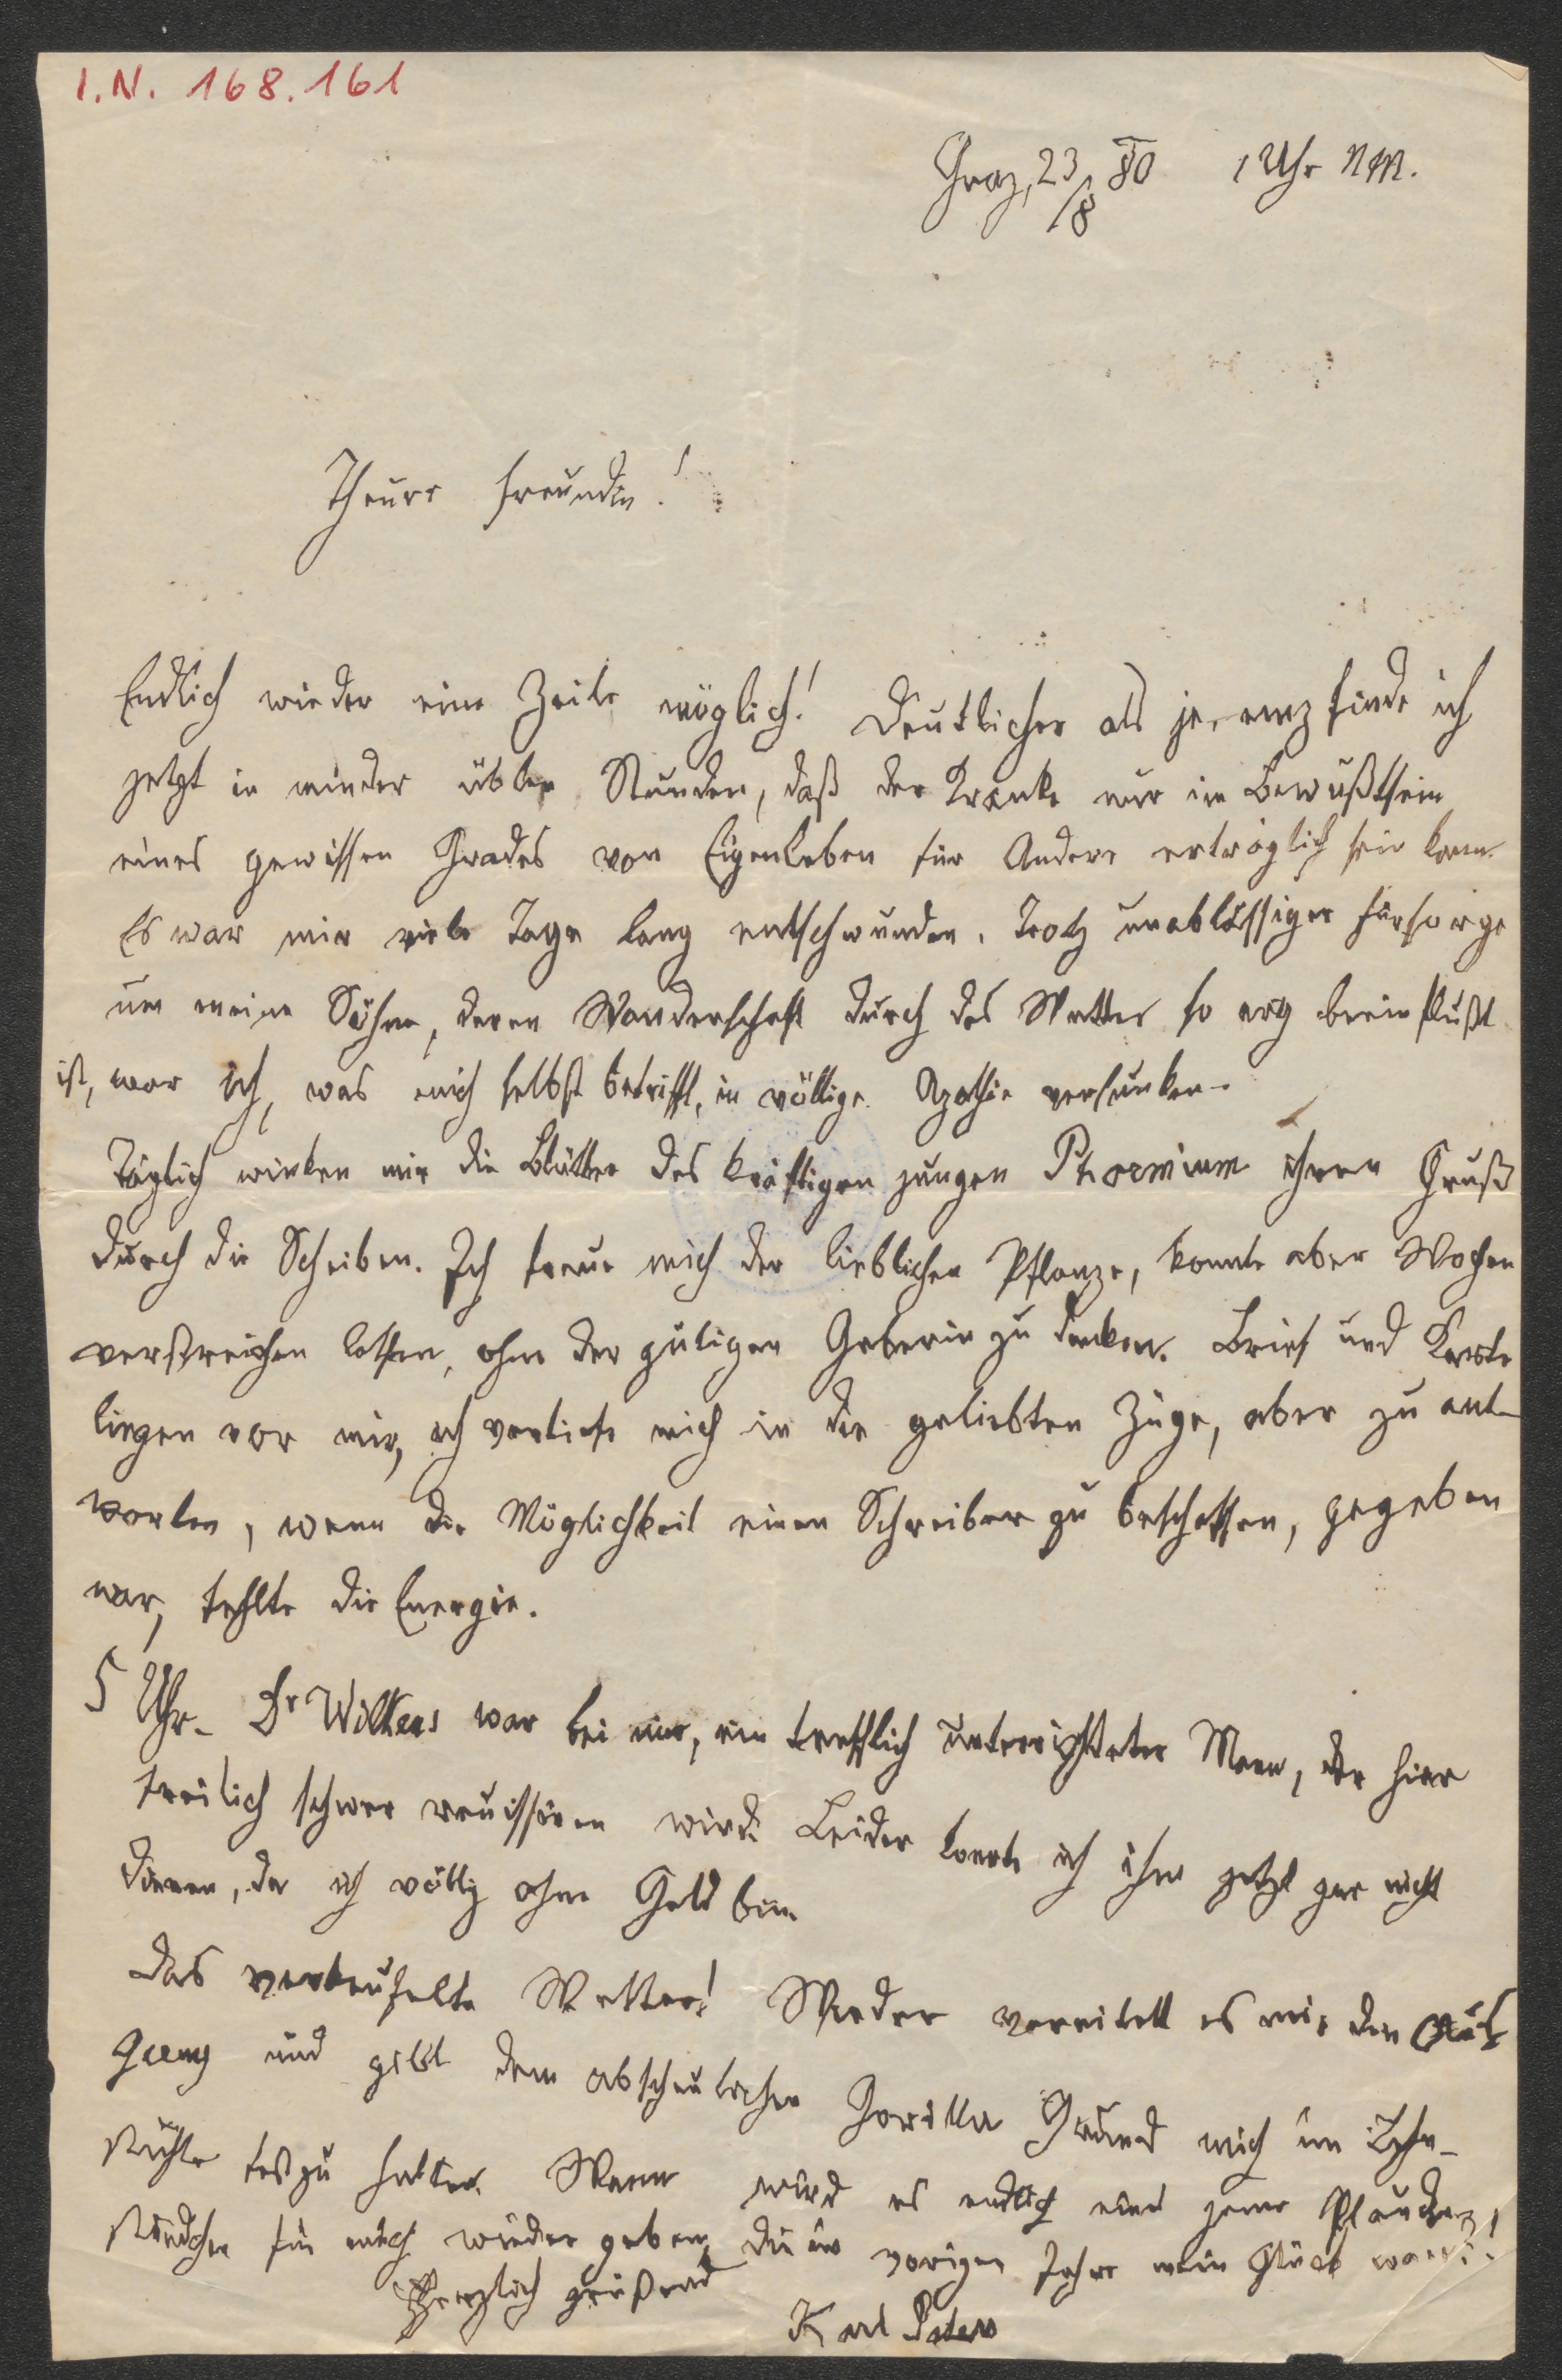 I.N. 168.161
Graz, 23/8 80 1 Uhr NM.
Theure Freundin!
Endlich wieder eine Zeile möglich! Deutlicher als je empfinde ich
jetzt in minder üblen Stunden, daß der Kranke nur im Bewußtsein
eines gewissen Grades von Eigenleben für Andere erträglich sein kann.
Es war mir viele Tage lang entschwunden. Trotz unablässiger Fürsorge
um meine Söhne, deren Wanderschaft durch das Wetter so arg beeinflußt
ist, war ich, was mich selbst betrifft, in völlige Apathie versunken.
Täglich winken mir die Blätter des kräftigen jungen Phormium ihren Gruß
durch die Scheiben. Ich freue mich der lieblichen Pflanze, konnte aber Wochen
verstreichen lassen, ohne der gütigen Geberin zu danken. Brief und Karte
liegen vor mir, ich vertiefe mich in die geliebten Züge, aber zu ant-
worten, wenn die Möglichkeit einen Schreiber zu beschaffen, gegeben
war, fehlte die Energie.
5 Uhr. Dr Wilkens war bei mir, ein trefflich unterrichteter Mann, der hier
freilich schwer reuissiren wird. Leider konnte ich ihm jetzt gar nicht
dienen, da ich völlig ohne Geld bin.
Das verteufelte Wetter! Wieder vereitelt es mir den Aus
gang und gibt dem abscheulichen Gorilla Grund mich im Lehn-
stuhle festzuhalten. Wann wird es endlich eines jener Plauder-
stündchen für mich wieder geben, die im vorigen Jahre mein Glück waren!
Herzlich grüßend
Karl Peters